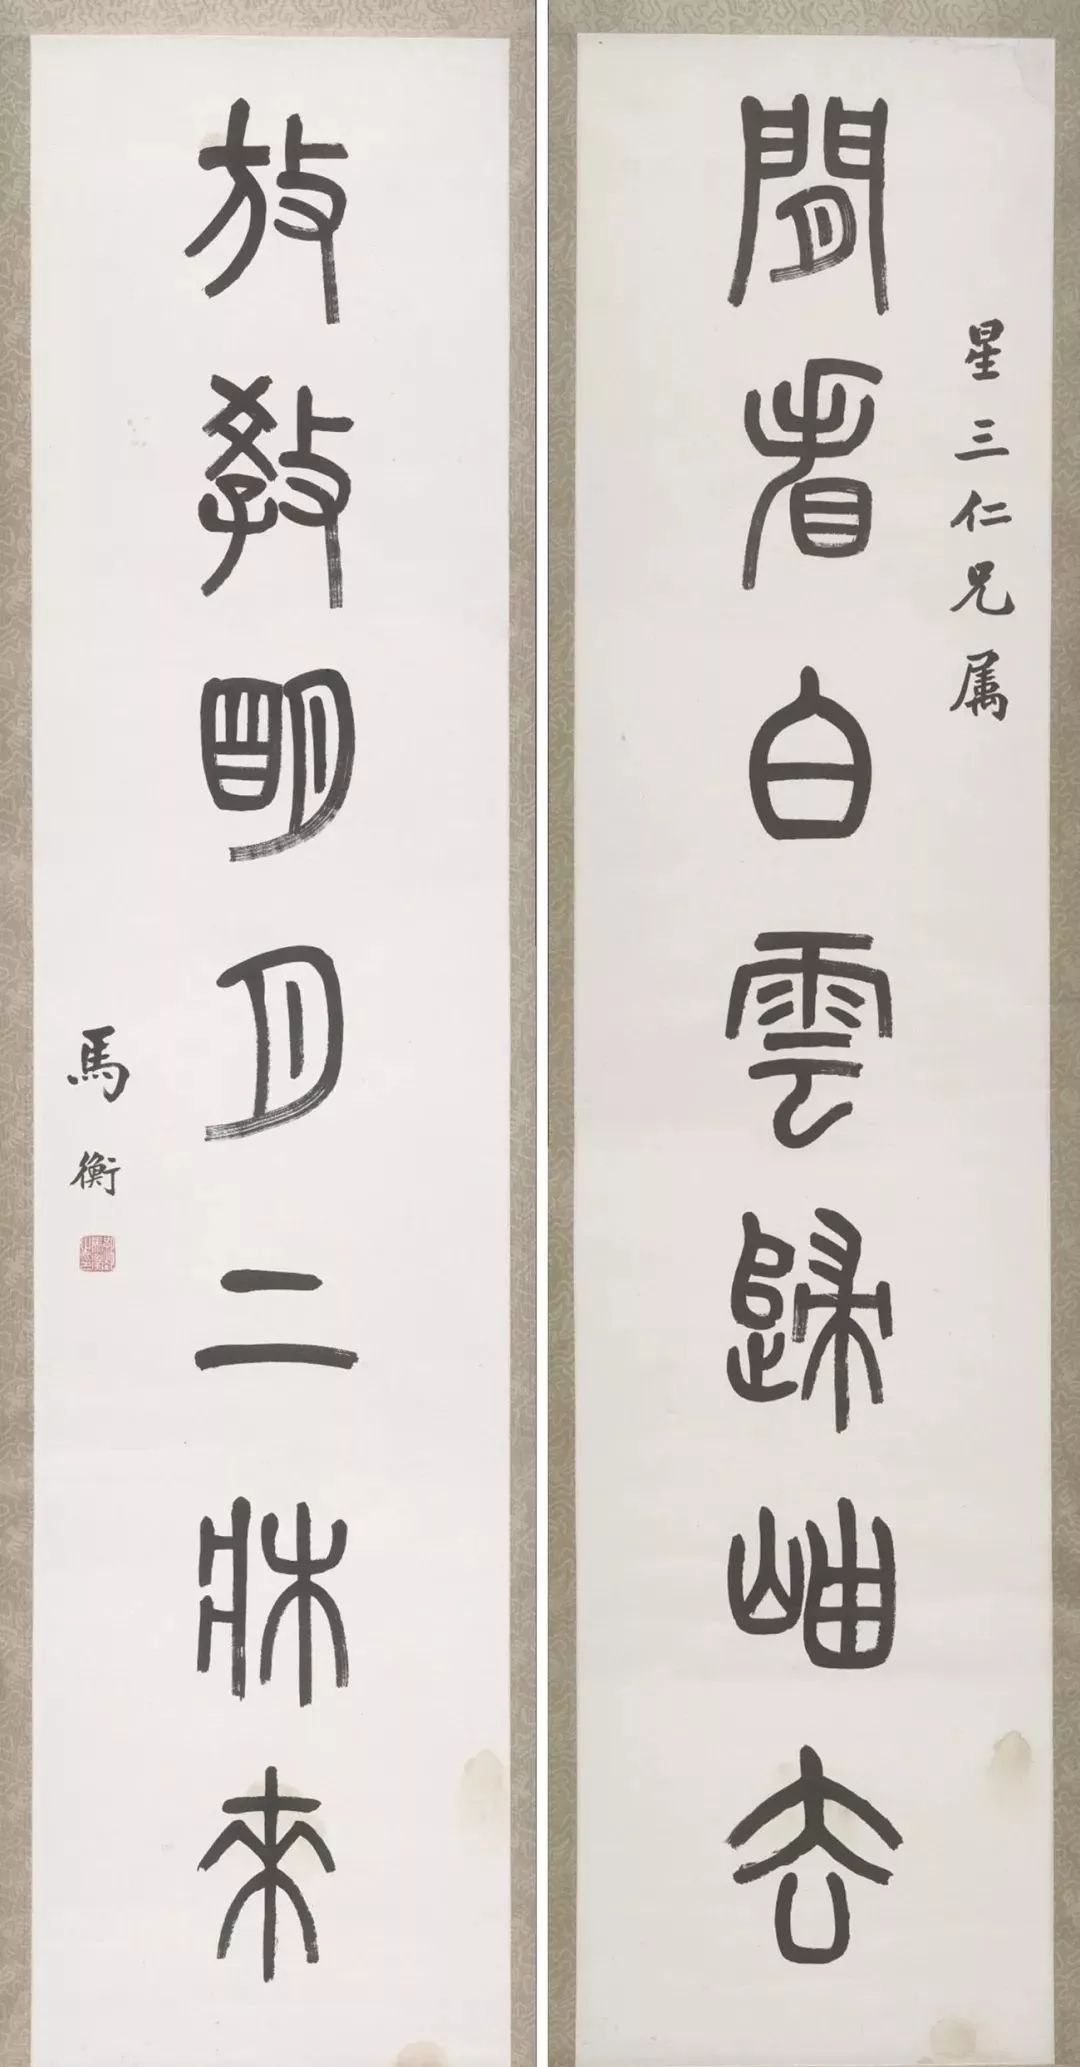 閒看白雲歸岫去
星三仁兄属
放教朙月上牀來
馬衡